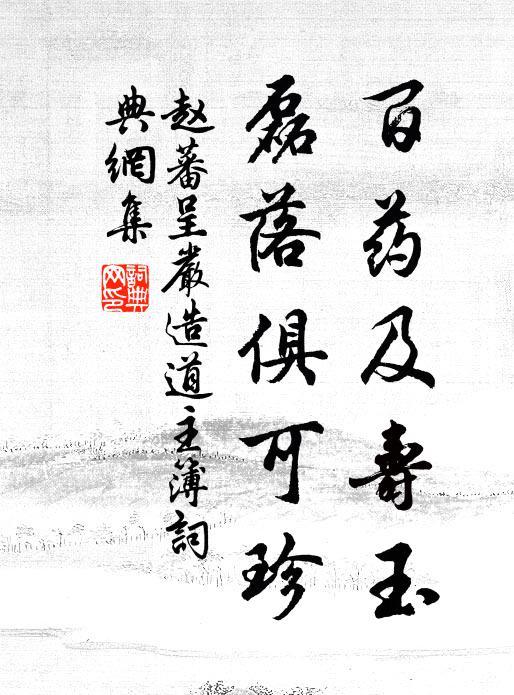 百药及寿玉
磊落俱可珍
赵蕃呈嚴造道主簿詞
典網集
詞典网印